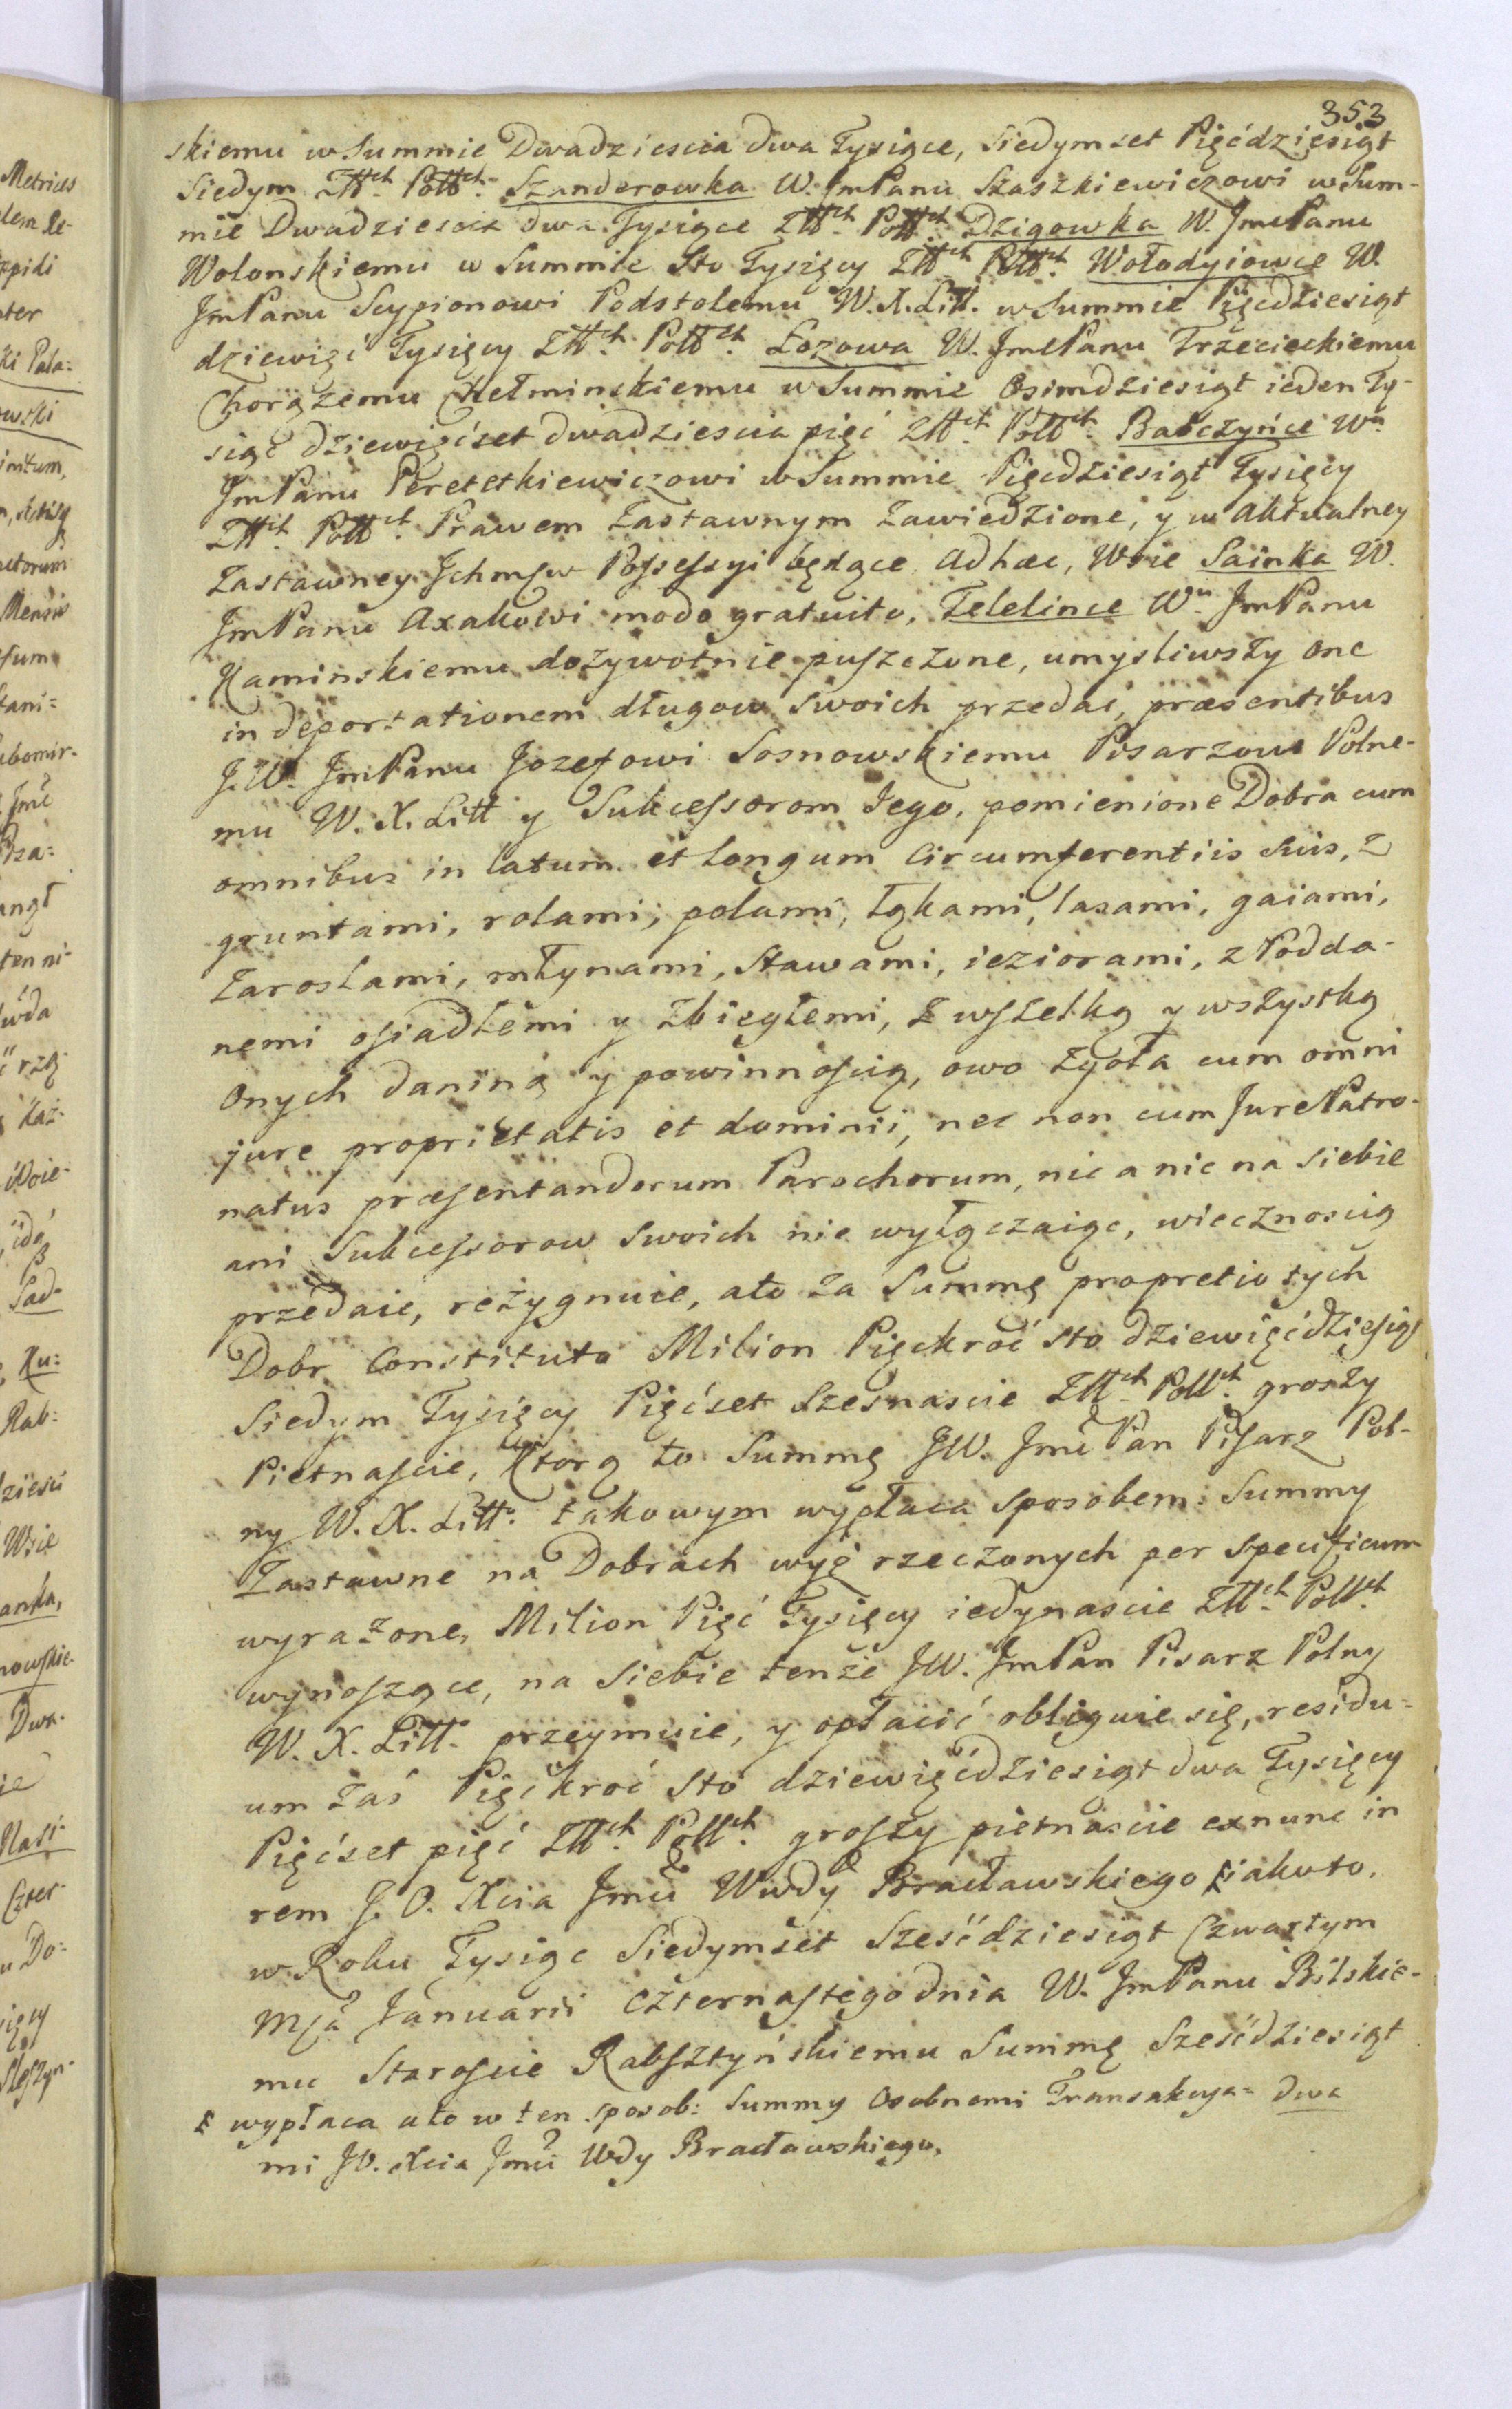 353
skiemu w Summie Dwadziescia dwa Tysiące, Siedymset Pięćdziesiąt
Siedym Złłch Pollch Szanderowka W. JmPanu Szaszkiewiczowi w Sum-
mie Dwadziescia dwa Tysiące Złłch Pollch Dzigowka W. JmePanu
Wolonskiemu w Summie Sto Tysięcy Złłch Pollch Wołodyiowce W.
JmPanu Scypionowi Podstolemu W. X. Litt. w Summie Pięcdziesiąt
dziewięć Tysięcy Złłch Pollch Łozowa W. JmePanu Trzecieckiemu
Chorążemu Chełminskiemu w Summie Osimdziesiąt ieden Ty-
siąc dziewięćset dwadziescia pięć Złłch Pollch Babczyńce Wu
JmPanu Peretetkiewiczowi w Summie Pięcdziesiąt Tysięcy
Złłch Pollch Prawem Zastawnym Zawiedzione, y w aktualney
Zastawney Ichmsw Possessyi będące adhæc, Wsie Sainka W.
JmPanu Axakowi modo gratuito, Telelince Wu JmPanu
Kaminskiemu dożywotnie puszczone, umysliwszy one
in deportationem długow swoich przedać, præsentibus
J. W. JmPanu Jozefowi Sosnowskiemu Pisarzowi Polne-
mu W. X. Litt y Sukcessorom Jego, pomienione Dobra cum
omnibus in latum et longum Circumferentiis suis, z
gruntami, rolami, polami, łąkami, lasami, gaiami,
Zaroslami, młynami, Stawami, ieziorami, z Podda-
nemi osiadłemi y zbiegłemi, z wszelką y wszystką
Onych daniną y powinnoscią, owo zgoła cum omni
jure proprietatis et dominii, nec non cum Jure Patro-
natus præsentandorum Parochorum, nic a nic na siebie
ani Sukcessorow swoich nie wyłączaiąc, wiecznoscią
przedaie, rezygnuie, a to za Summę pro pretio tych
Dobr Constituto Milion Pięckroć sto dziewięćdziesiąt
Siedym Tysięcy Pięćset Szesnascie Złłch Pollch groszy
Pietnascie, Ktorą to Summę JW. Jmć Pan Pisarz Pol-
ny W. X. Litt. takowym wypłaca sposobem: Summy
Zastawne na Dobrach wyż rzeczonych per specificum
wyrażone, Milion Pięć Tysięcy iedynascie Złłch Pollch
wynoszące, na siebie tenże JW. JmPan Pisarz Polny
W. X. Litt. przeymuie, y opłacić obliguie się, residu-
um zaś Pięćkroć Sto dziewięćdziesiąt dwa Tysięcy
Pięćset pięć Złłch Pollch groszy pietnascie exnunc in
rem J. O. Xcia Jmci Wwdy Bracławskiego iakoto.
w Roku Tysiąc Siedymset Sześćdziesiąt Czwartym
Msca Januarii czternastego dnia W. JmPanu Bilskie-
mu Staroscie Rabsztyńskiemu Summę Sześćdziesiąt
wypłaca a to w ten sposob: Summy Osobnemi Transakcya= dwa
mi JO. Xcia Jmci Wdy Bracławskiego,